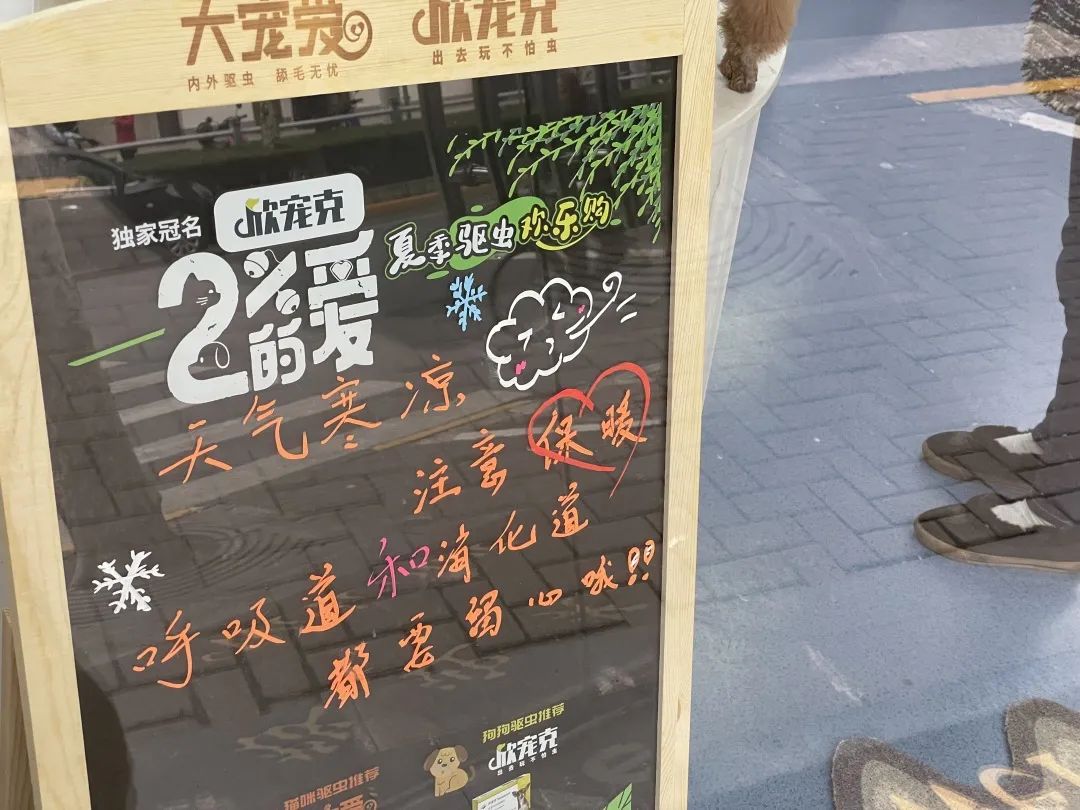 大宠爱 欣宠克
内外驱虫 舔毛无忧 出去玩不怕虫
独家冠名 欣宠克
2%的爱
夏季驱虫欢乐购
天气寒凉
注意保暖
呼吸道和消化道
都要留心哦!!!
狗狗驱虫推荐
欣宠克
出去玩不怕虫
猫咪驱虫推荐